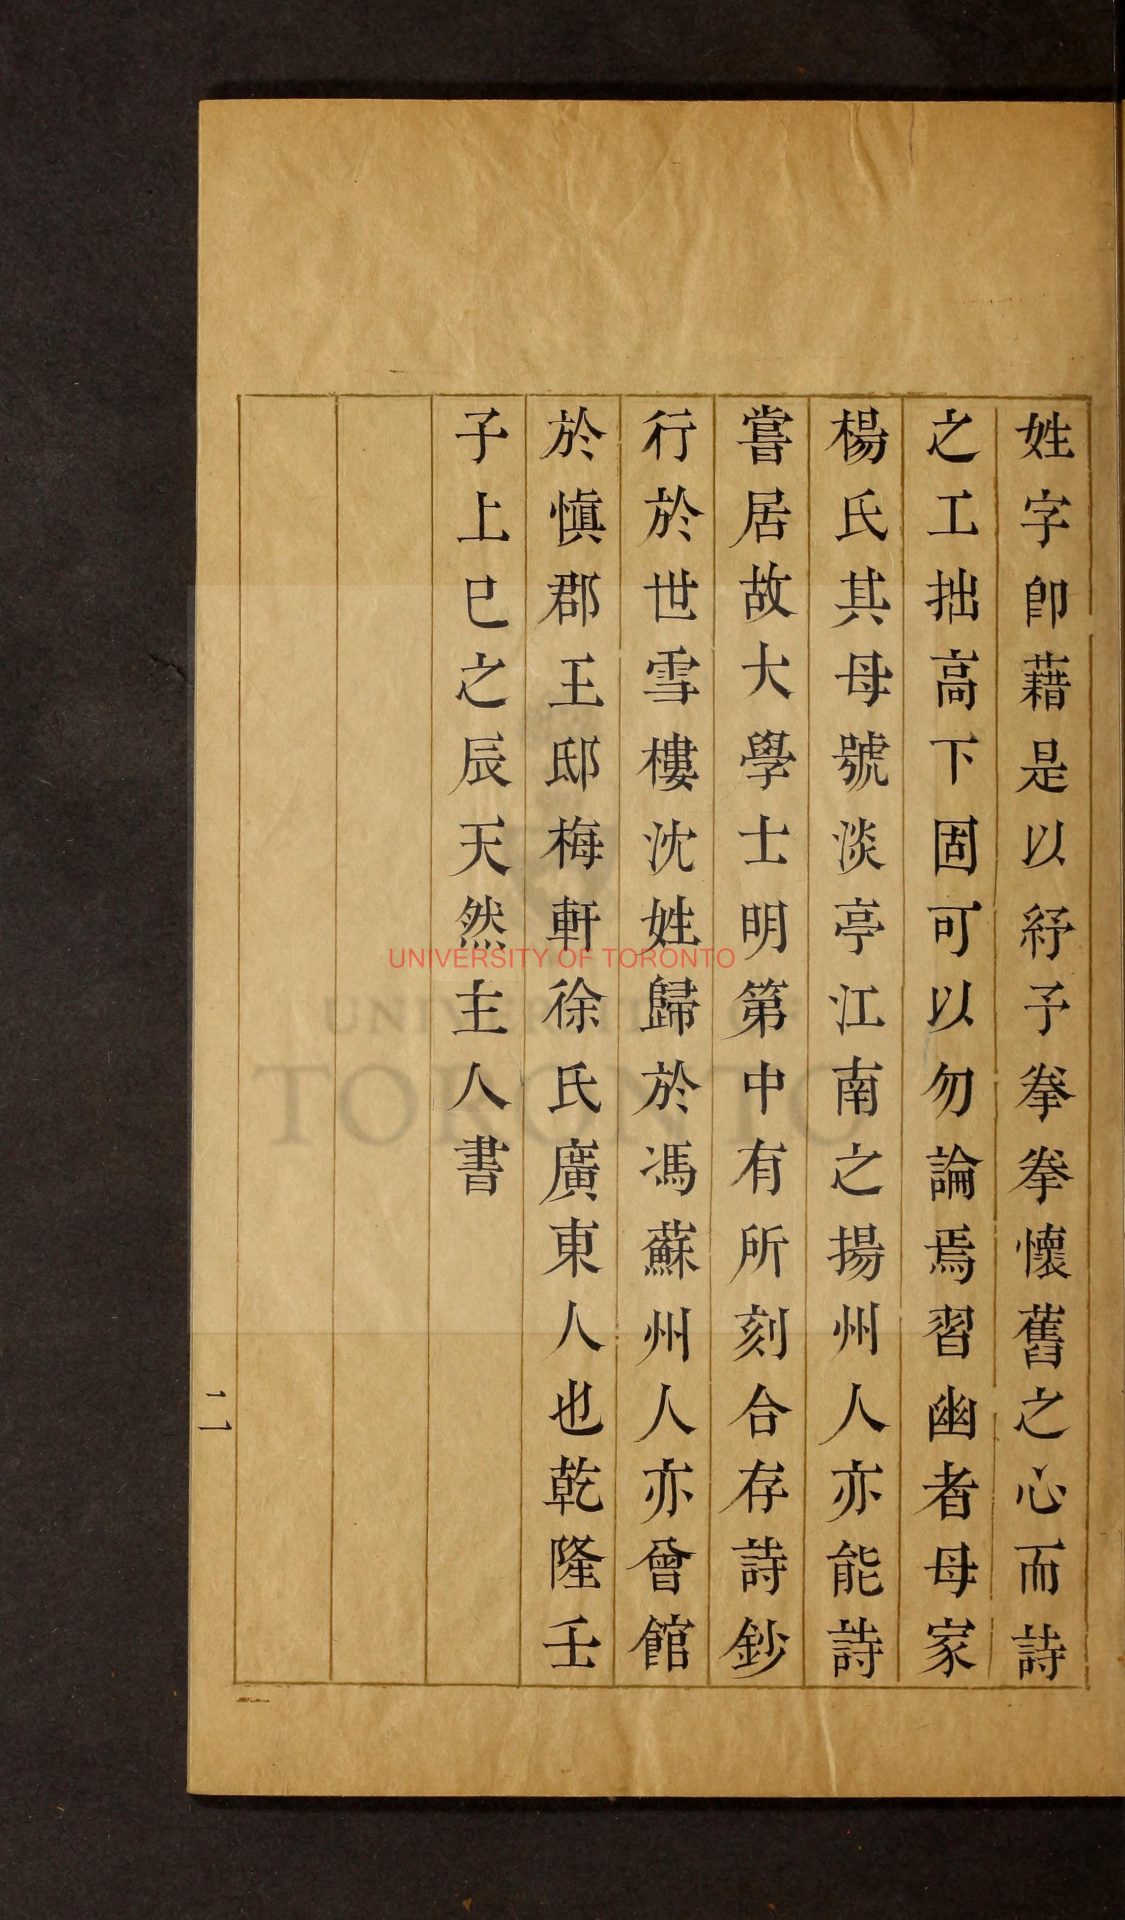 姓字卽藉是以紓予拳拳懷舊之心而詩
之工拙高下固可以勿論焉習幽者母家
楊氏其母號淡亭江南之揚州人亦能詩
嘗居故大學士明第中有所刻合存詩鈔
行於世雪樓沈姓歸於馮蘇州人亦曾館
於愼郡王邸梅軒徐氏廣東人也乾隆壬
子上巳之辰天然主人書
二
UNIVERSITY OF TORONTO
UNIVERSITY OF
TORONTO